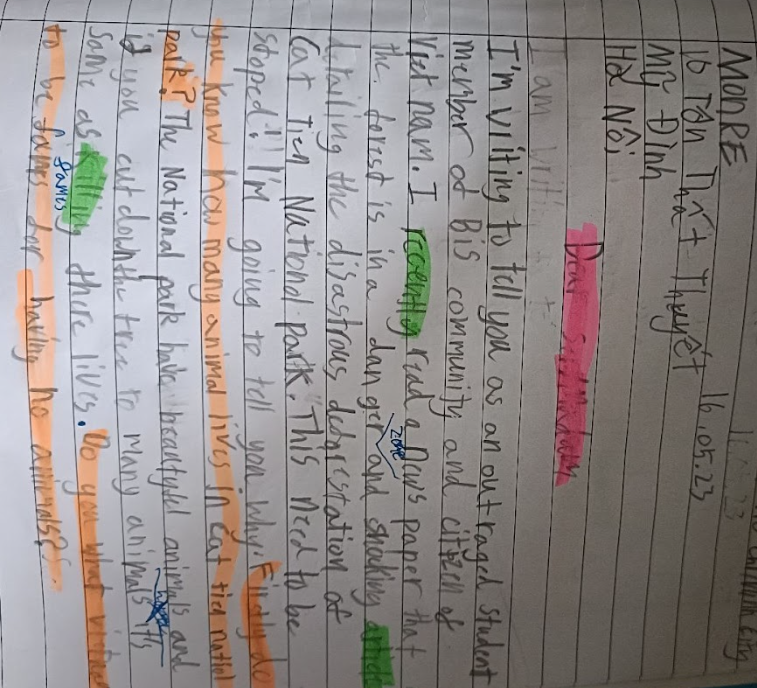 MONRE
10 Tôn Thất Thuyết 16.05.23
Mỹ Đình
Hà Nội
Dear Sir/Madam
I am writi
I'm writing to tell you as an outraged student
member of BIS community and citizen of
Viet nam. I recently read a news paper that
the forest is in a danger zone and shocking article
detailing the disastrous deforestation of
Cat Tien National park. This need to be
stoped!! I'm going to tell you why. Firstly do
you know how many animal lives in cat tien nationl
park? The National park have beautyful animals and
if you cut down the tree to many animals its
same as killing there lives. Do you what vietnam
to be fames fames for having no animals?